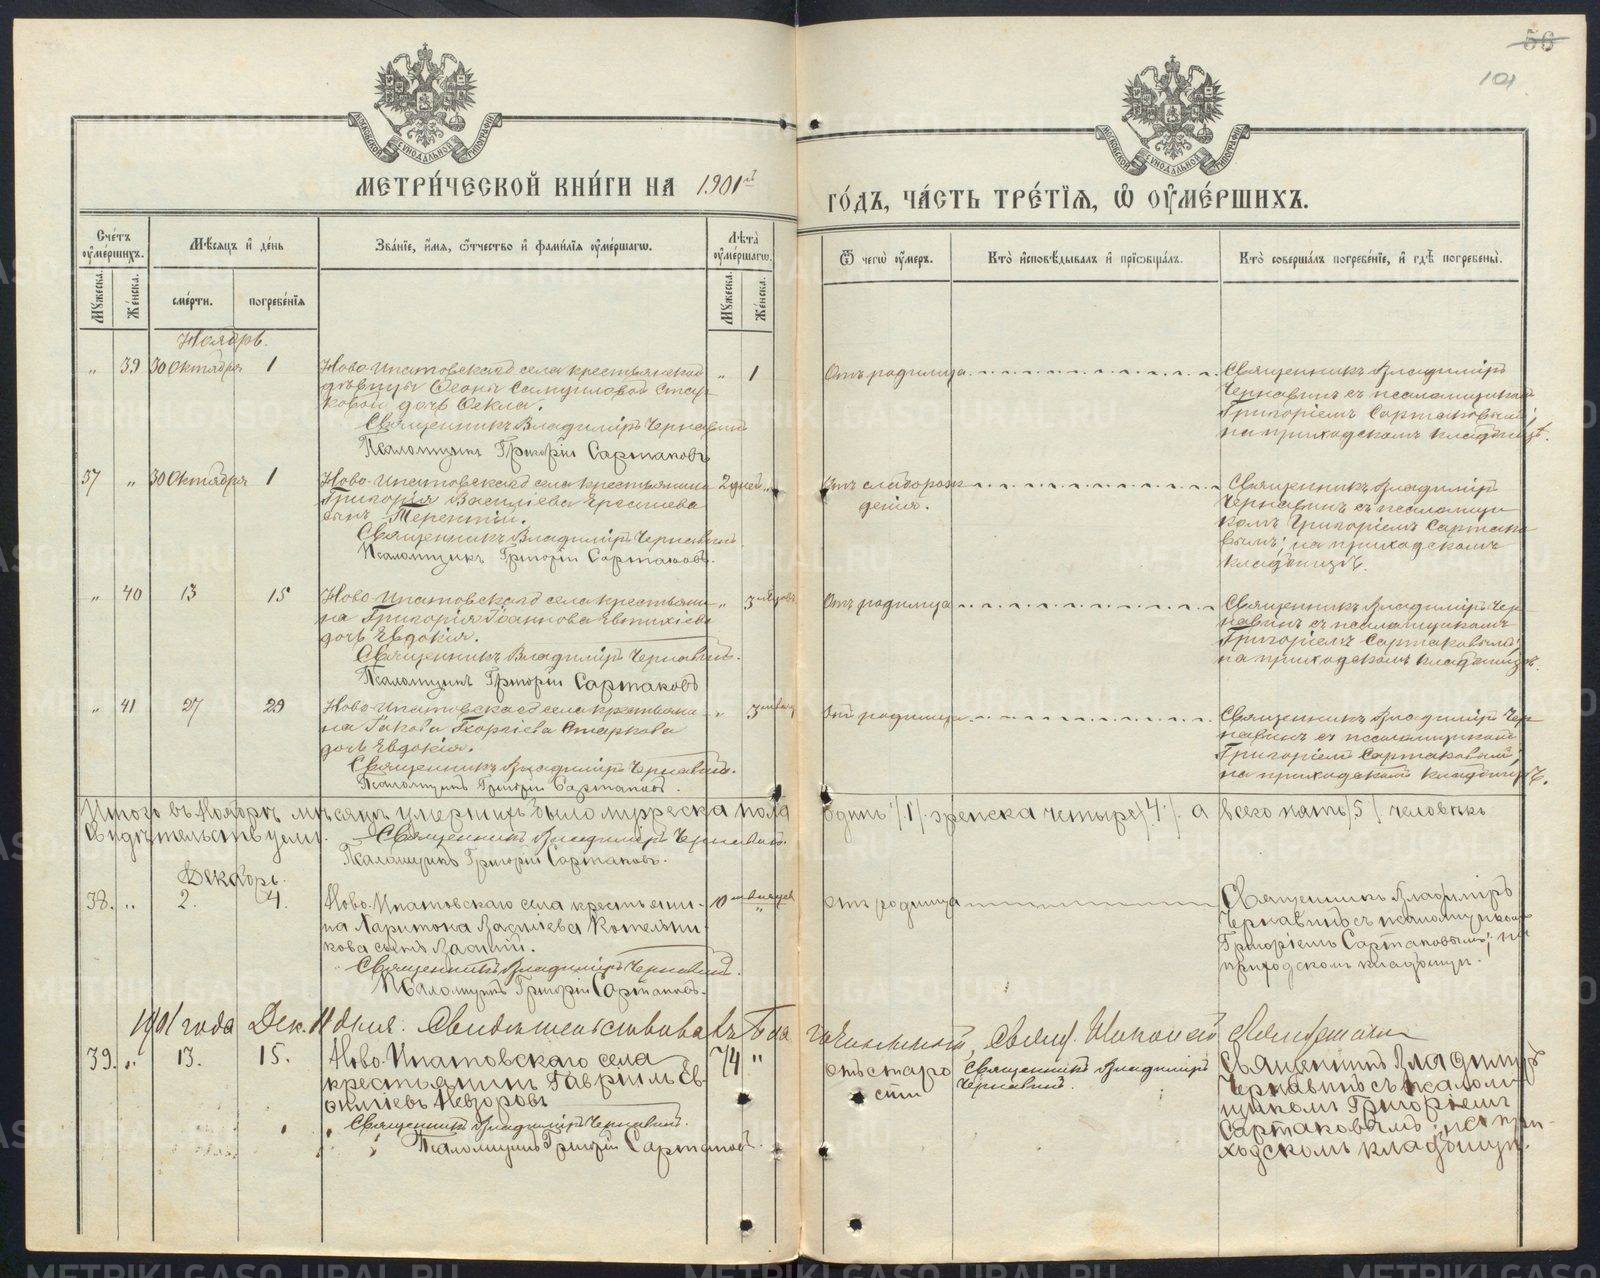 56
101
МЕТРИ́ЧЕСКОЙ КНИ́ГИ НА 1901й
ГО́ДЪ, ЧА́СТЬ ТРЕ́ТІѦ, Ѡ҆ ОУ҆МЕ́РШИХЪ.
Сче́тъ оу҆ме́ршихъ.
Мѣ́сѧцъ и҆ де́нь
Зва́ніе, и҆́мѧ, ѻ҆́тчество и҆ фами́ліѧ оу҆ме́ршагѡ.
Лѣ́та оу҆ме́ршагѡ.
Ѿ чегѡ̀ оу҆́меръ.
Кто̀ и҆сповѣ́дывалъ и҆ прїѡбща́лъ.
Кто̀ соверша́лъ погребе́ніе, и҆ гдѣ̀ погребены̀.
Мꙋ́жеска.
Же́нска.
сме́рти.
погребе́нїѧ
Мꙋ́жеска.
Же́нска.
Ноябрь.
„ 39 30 Октября 1
Ново-Ипатовскаго села крестьянской
дѣвицы Ѳеоны Самуиловой Стар-
ковой дочь Ѳекла.
Священникъ Владиміръ Чернавинъ
Псаломщикъ Григорій Сартаковъ
„ 1
Отъ родимца
Священникъ Владиміръ
Чернавинъ съ псаломщикомъ
Григоріемъ Сартаковымъ;
на приходскомъ кладбищѣ.
37 „ 30 Октября 1
Ново-Ипатовскаго села крестьянина
Григорія Василіева
сынъ Терентій.
Священникъ Владиміръ Чернавинъ
Псаломщикъ Григорій Сартаковъ.
2 дней „
Отъ слаборож-
денія.
Священникъ Владиміръ
Чернавинъ съ псаломщи-
комъ Григоріемъ Сартако-
вымъ; на приходскомъ
кладбищѣ.
„ 40 13 15
Ново-Ипатовскаго села крестьяни-
на Григорія Іоаннова Евтихіева
дочь Евдокія.
Священникъ Владиміръ Чернавинъ.
Псаломщикъ Григорій Сартаковъ
„ 3 мѣсяцовъ
Отъ родимца
Священникъ Владиміръ Чер-
навинъ съ псаломщикомъ
Григоріемъ Сартаковымъ;
на приходскомъ кладбищѣ.
„ 41 27 29
Ново-Ипатовскаго села крестьяни-
на Іакова Георгіева Старкова
дочь Евдокія.
Священникъ Владиміръ Чернавинъ.
Псаломщикъ Григорій Сартаковъ.
„ 3
Отъ родимца
Священникъ Владиміръ Чер-
навинъ съ псаломщикомъ
Григоріемъ Сартаковымъ;
на приходскомъ кладбищѣ.
Итого въ Ноябрѣ мѣсяцѣ умершихъ было мужеска пола одинъ /1/. женска четыре /4/. а всего пять /5/ человѣкъ
Свидѣтельствуемъ. Священникъ Владиміръ Чернавинъ.
Псаломщикъ Григорій Сартаковъ.
Декабрь.
38. „ 2. 4.
Ново-Ипатовскаго села крестьяни-
на Харитона Василіева Котельни-
кова сынъ Василій.
Священникъ Владиміръ Чернавинъ.
Псаломщикъ Григорій Сартаковъ.
10 мѣсяцевъ „
Отъ родимца
Священникъ Владиміръ
Чернавинъ съ псаломщикомъ
Григоріемъ Сартаковымъ; на
приходскомъ кладбищѣ.
1901 года Дек. 11 дня. Свидѣтельствовалъ Благочинный, Свящ. Николай
39. „ 13. 15.
Ново-Ипатовскаго села
крестьянинъ Гавріилъ Ев-
ѳиміевъ Невзоровъ
Священникъ Владиміръ Чернавинъ.
Псаломщикъ Григорій Сартаковъ.
74 „
Отъ старо
сти
Священникъ Владиміръ
Чернавинъ.
Священникъ Владиміръ
Чернавинъ съ псалом-
щикомъ Григоріемъ
Сартаковымъ; на при-
ходскомъ кладбищѣ.
METRIKI.GASO-URAL.RU